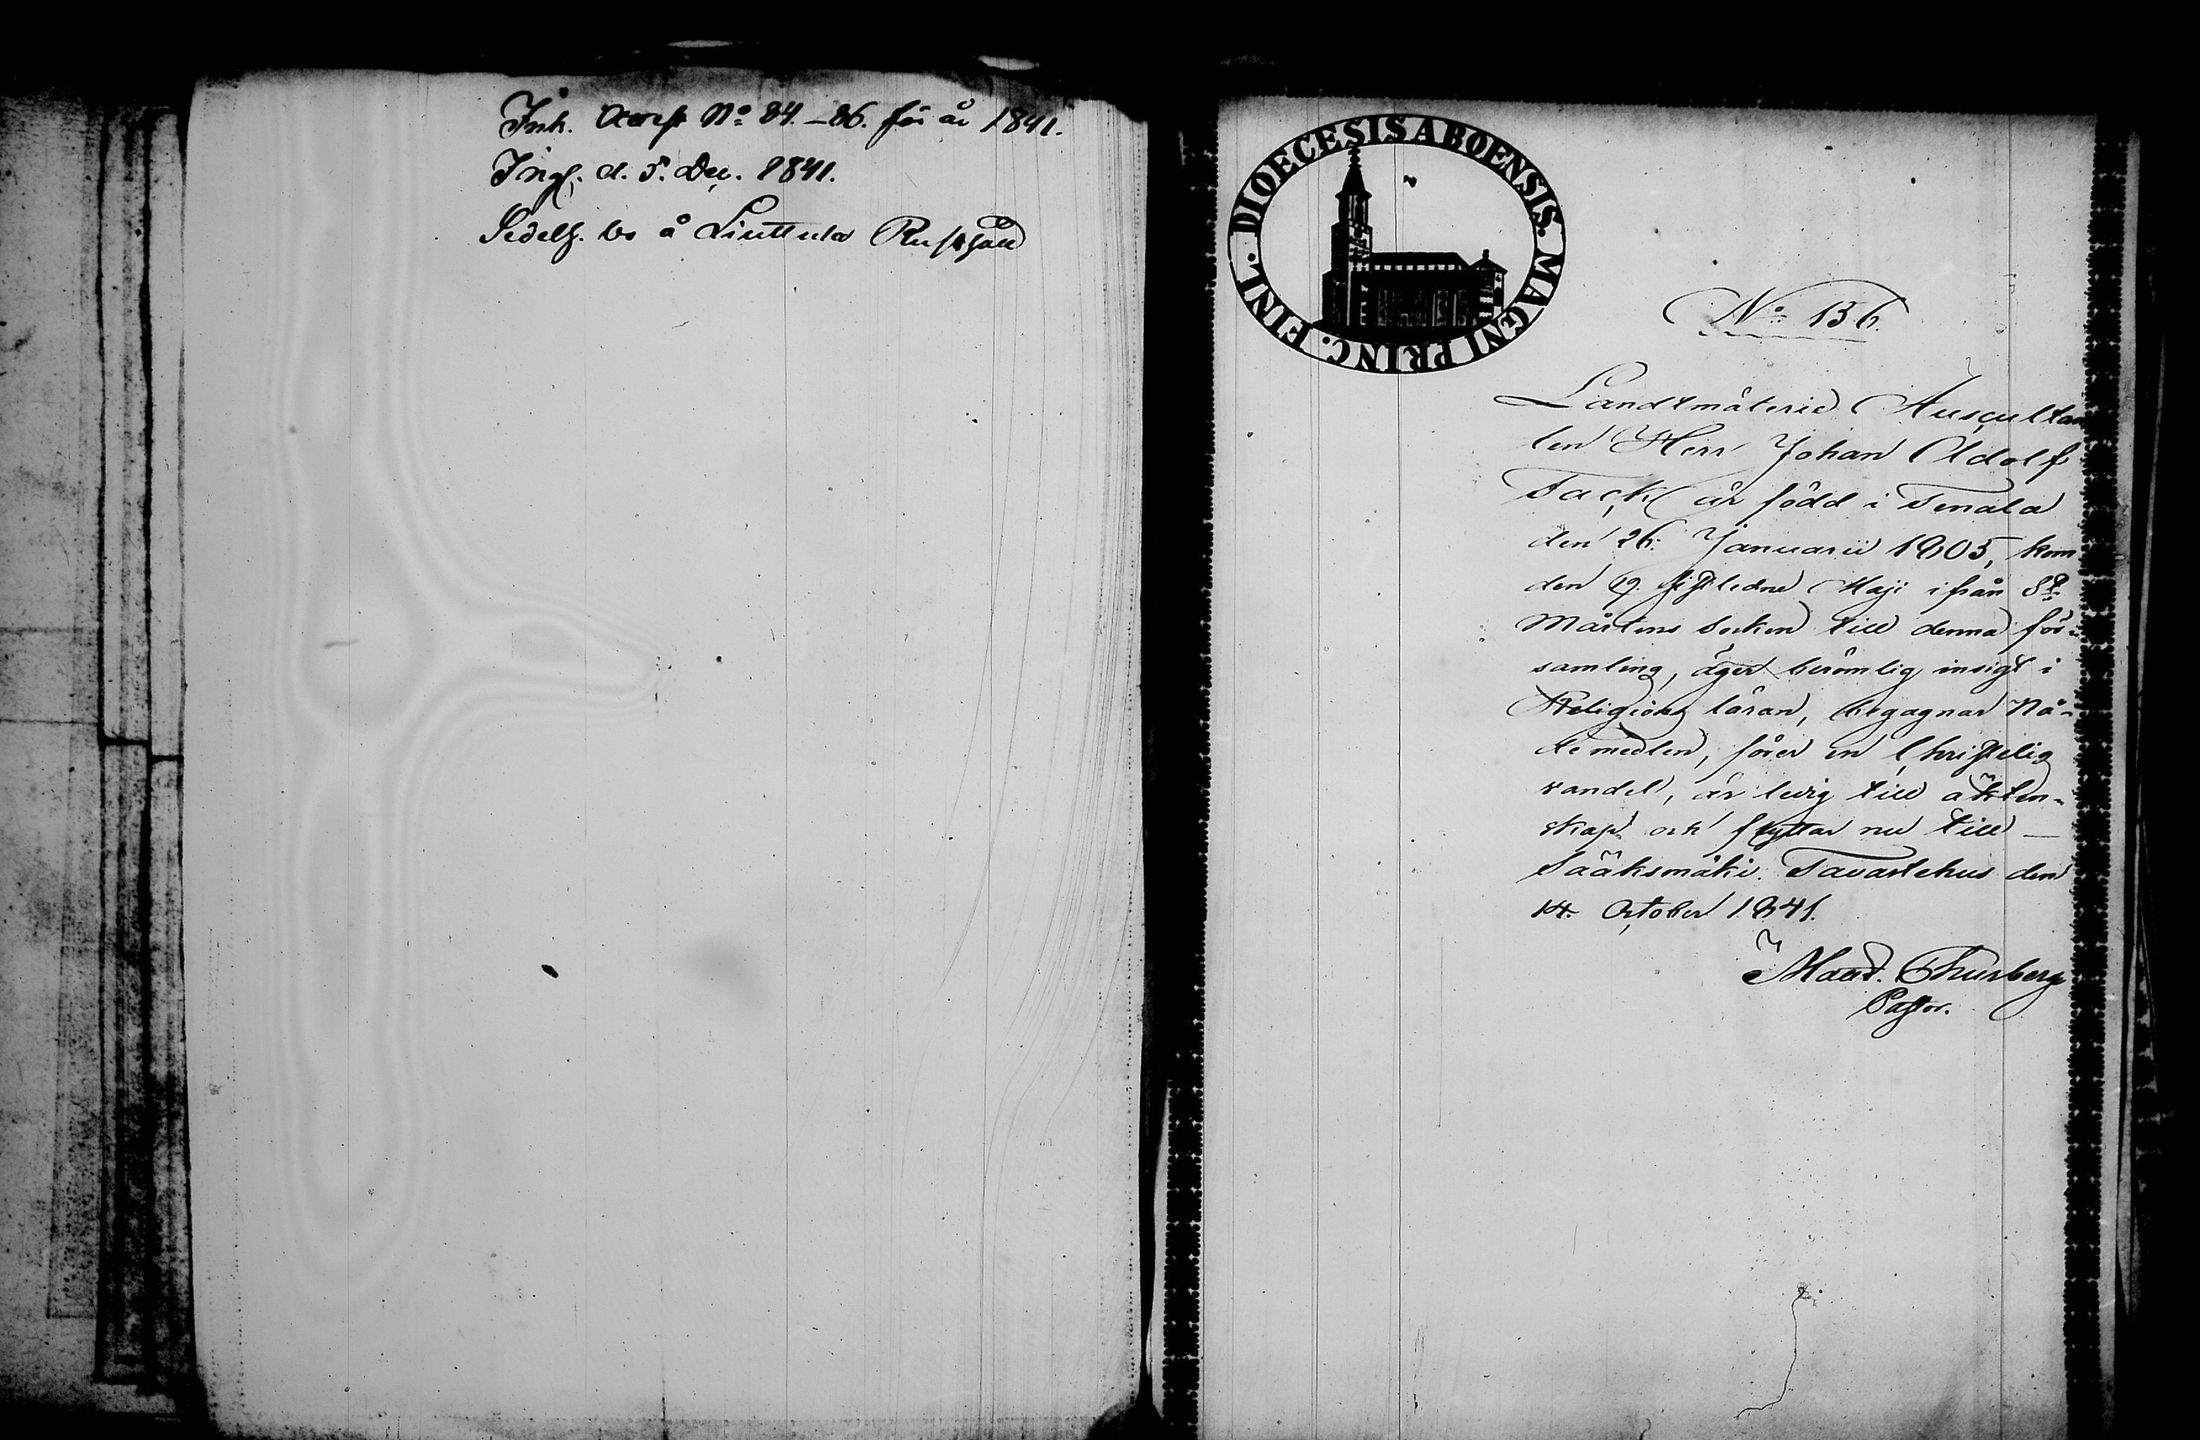 Ink. attest No 84.–86. för år 1841.
Ingf. d. 5. Dec. 1841.
Sedelh. bo å Liuttula Rusthåll
DIOECESIS ABOENSIS. MAGNI PRINC. FINL.
No 136.
Landtmäterie Auscultan
ten Herr Johan Adolf
Tack är född i Tenala
den 26. Januarii 1805, kom
den 19. sistledne Maji ifrån St
Mårtens Socken till denna för-
samling, äger berömlig insigt i
Religions läran, begagnar Nå-
demedlen, förer en Christelig
vandel, är ledig till äkten-
skap och flyttar nu till –
Sääksmäki. Tavastehus den
14. October 1841.
Thurberg
Pastor.